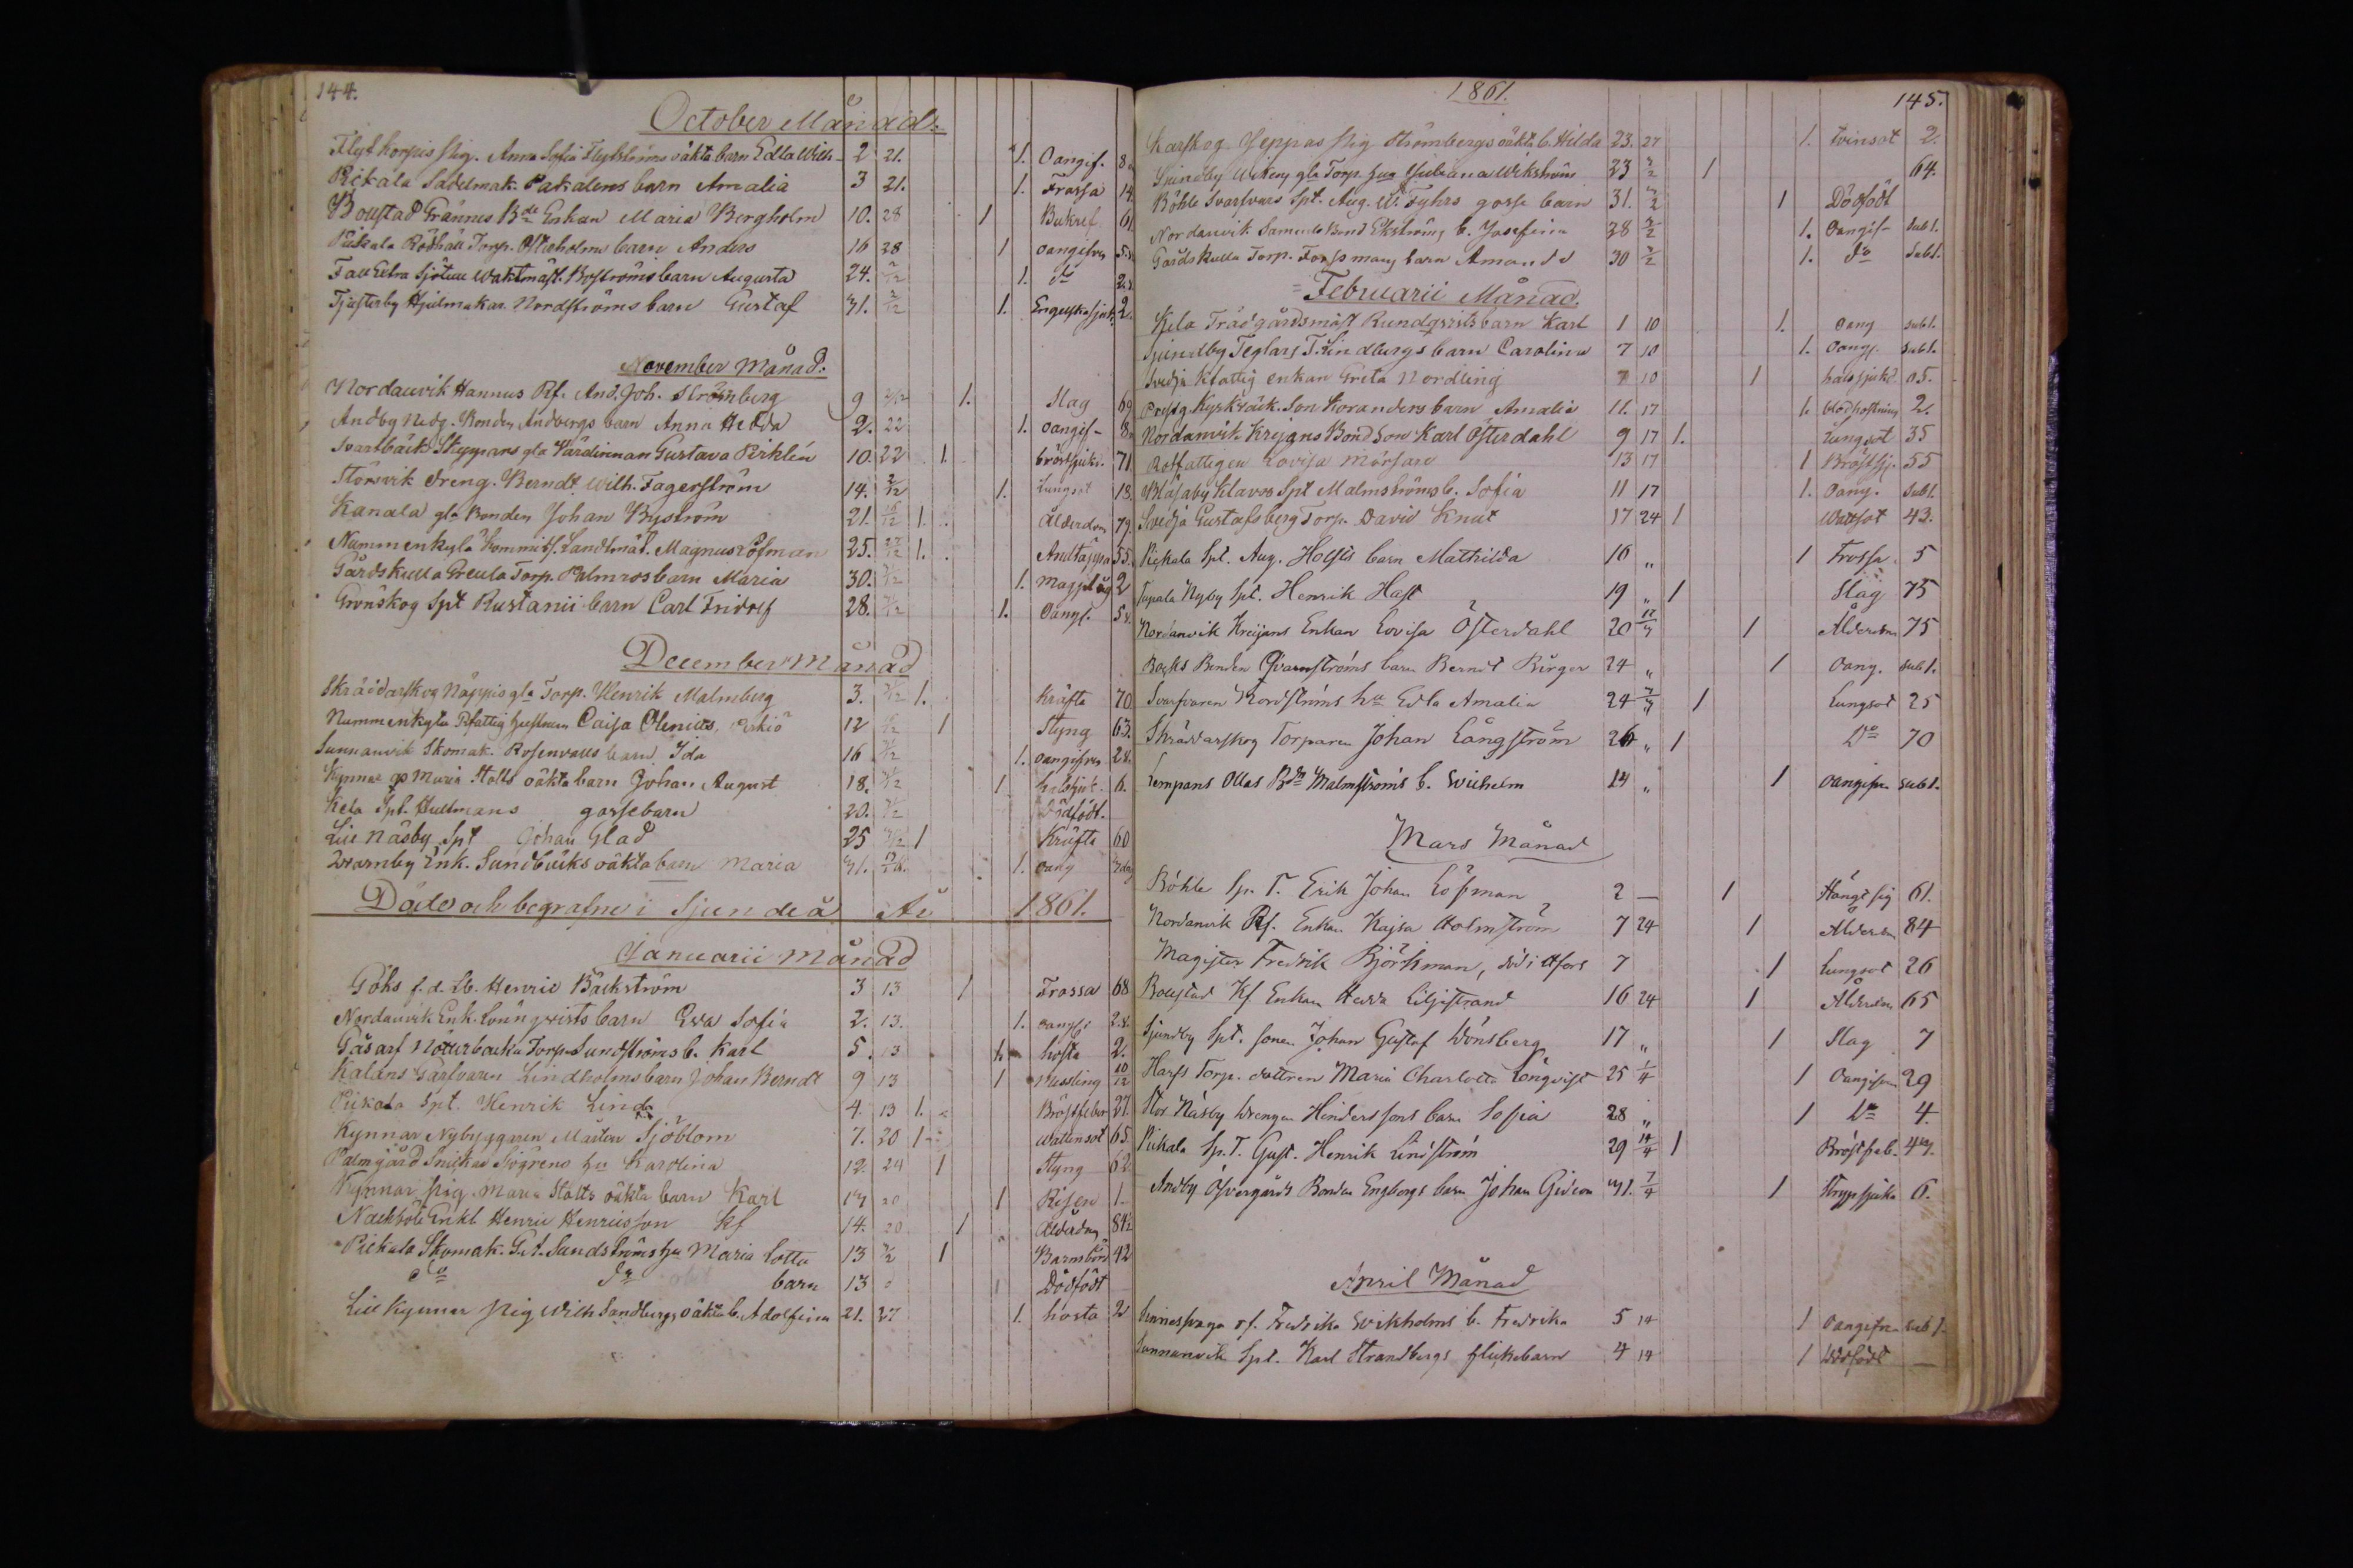 144.
October Månad.
Flyt horpis Pig. Anna Sofia Flytströms oäkta barn Edla Wilh 2 21. 1. Oangif. 8
Pickala Sadelmak. Pakalens barn Amalia 3 21. 1. Frossa 14
Boustad Grännes Bde Enkan Maria Bergholm 10. 28 1 Bukref 61
Pickala Rödhäll Torp. Öfverholms barn Anders 16 28 1 oangifven 5
Fall Extra Sjötull Waktmäst. Boströms barn Augusta 24. 2/12 1. do 2
Tjusterby Hjulmakar. Nordströms barn Gustaf 31. 2/12 1. Engelska sjuk. 2.
November Månad.
Nordanvik Hannus Rf. And. Joh. Strömberg 9 2/12 1. Slag 69
Andby Nedg. Bonden Andbergs barn Anna Hedda 2. 22 1. oangif 8
Svartbäck Skeppars gla Värdinnan Gustava Pirklén 10. 22 1. bröstsjukd. 71
Störsvik dreng. Berndt Wilh. Fagerström 14. 2/12 1. Lungsot 18.
Kanala gla Bonden Johan Byström 21. 16/12 1. Ålderdom 79
Nummenkylä Kommiss. Landtmät. Magnus Löfman 25. 27/12 1. Andtäppa 55
Gårdskulla Greula Torp. Palmros barn Maria 30. 1. Magplåg 2
Grönskog Spt Rustanii barn Carl Fridolf 28. 1. Oangf. 5
December Månad
Skräddarskog Näppis gla Torp. Henrik Malmberg 3. 1. Kräfta 70
Nummenkylä Rfattig hustrun Caisa Olenius, 12 1 Styng 63.
Sunnanvik Skomak. Rosenvalls barn Ida 16 1. oangifven 2
Kynnar po Maria Stolts oäkta barn Johan August 18. 1 halssjuk. 6.
Kela Spt. Hultmans gossebarn 20. Dödfödt.
Lill Näsby Spt Johan Glad 25 1 Kräfta 60
Qvarnby Enk. Sundbäcks oäkta barn Maria 31. 1. oang
Döde och begrafne i Sjundeå År 1861.
Januarii Månad
Göks f. d. Lb. Henric Bäckström 3 13 1 Frossa 68
Nordanvik Enk. Lönnqvists barn Eva Sofia 2. 13. 1. oangfs 2
Gåsarf Nöturbacka Torp. Sundströms b. Karl 5. 13 1. hosta 2.
Kalans Garfvaren Lindholms barn Johan Berndt 9 13 1 Messling 10/12
Pickala Spt. Henrik Lind 4. 13 1. Bröstfeber 27.
Kynnar Nybyggaren Mårten Sjöblom 7. 20 1 Wattensot 65
Palmgård Snickar Sjögrens hu Karolina 12. 24 1 Styng 62
Kynnar pig. Maria Stolts oäkta barn Karl 13 20 1 Risen 1
Nackböle Enkl. Henric Henricsson Kf 14. 20 1 Ålderdom 84 1/2
Pickala Skomak. G. A. Sundströms hu Maria Lotta 13 3/2 1 Barnsbörd 42
do do barn 13 1 Dödfödt
Lill Kynnar Pig Wilh Sandbergs oäkta b. Adolfina 21. 27 1. hosta 2
1861.
145.
Karskog Jeppas Pig Strömbergs oäkta b. Hilda 23. 27 1. tvinsot 2.
Sjundby Wikens gla Torp. hua Juliana Wikström 23 3/2 1 64.
Böhle Svarfvars Spt. Aug. W. Fyhrs gosse barn 31. 3/2 1 Dödfödt
Nordanvik Samuels Bond Ekströms b. Josefina 28 3/2 1. Oangif- sub 1.
Gårdskulla Torp. Forsmans barn Amanda 30 3/2 1. do sub 1.
Februarii Månad.
Kela Trädgårdsmäst Rundqvists barn Karl 1 10 1. Oang sub 1.
Sjundby Teglars T. Lindbergs barn Carolina 7 10 1. Oangf. sub 1.
Svedja Kfattig enkan Greta Nordling 7 10 1 halssjukd. 05.
Prestg. Kyrkväk. Son Koranders barn Amalia 11. 17 1. blodhostning 2.
Nordanvik Krejans Bond Son Karl Österdahl 9 17 1. Lungsot 35
Rotfattigen Lovisa Mörsare 13 17 1 Bröstsj. 55
Blåsaby Klavos Spt Malmströms b. Sofia 11 17 1. Oang. sub 1.
Svedja Gustafsberg Torp. David Knut 17 24 1 Wattsot 43.
Pickala Spt. Aug. Holsts barn Mathilda 16 „ 1 Frossa. 5
Tupala Nyby Spt. Henrik Hast 19 „ 1 Slag 75
Nordanvik Kreijans Enkan Lovisa Österdahl 20 1 Ålderdom 75
Backs Bonden Qvarnströms barn Berndt Birger 24 „ 1 Oang. sub 1.
Svarfvaren Nordströms hu Edla Amalia 24 1 Lungsot 25
Skräddarskog Torparen Johan Långström 26 „ 1 Do 70
Lempans Ollas Bdn Malmströms b. Wilhelm 14 „ 1 Oangifven sub 1.
Mars Månad
Böhle Sp. T. Erik Johan Löfman 2 — 1 Hängt sig 61.
Nordanvik Rf. Enkan Kajsa Holmström 7 24 1 Ålderdom 84
Magister Fredrik Björkman, död i Hfors 7 1 Lungsot 26
Boustad Kf. Enkan Hedda Liljestrand 16 24 1 Ålderdom 65
Sjundby Spt. sonen Johan Gustaf Wönsberg 17 „ 1 Slag 7
Harfs Torp. dottren Maria Charlotta Lönqvist 25 1/4 1 Oangifven 29
Stor Näsby Drengen Hinderssons barn Sofia 28 „ 1 Do 4.
Pickala Sp. T. Gust. Henrik Lindström 29 14/4 1 Bröstfeb. 43.
Andby Öfvergårds Bonden Engbergs barn Johan Gideon 31. 7/4 1 Strypsjuka 6.
April Månad
rf. Fredrika Wikholms b. Fredrika 5 14 1 Oangifven sub 1.
Sunnanvik Spt. Karl Strandbergs flickebarn 4 14 1 Dödfödt —